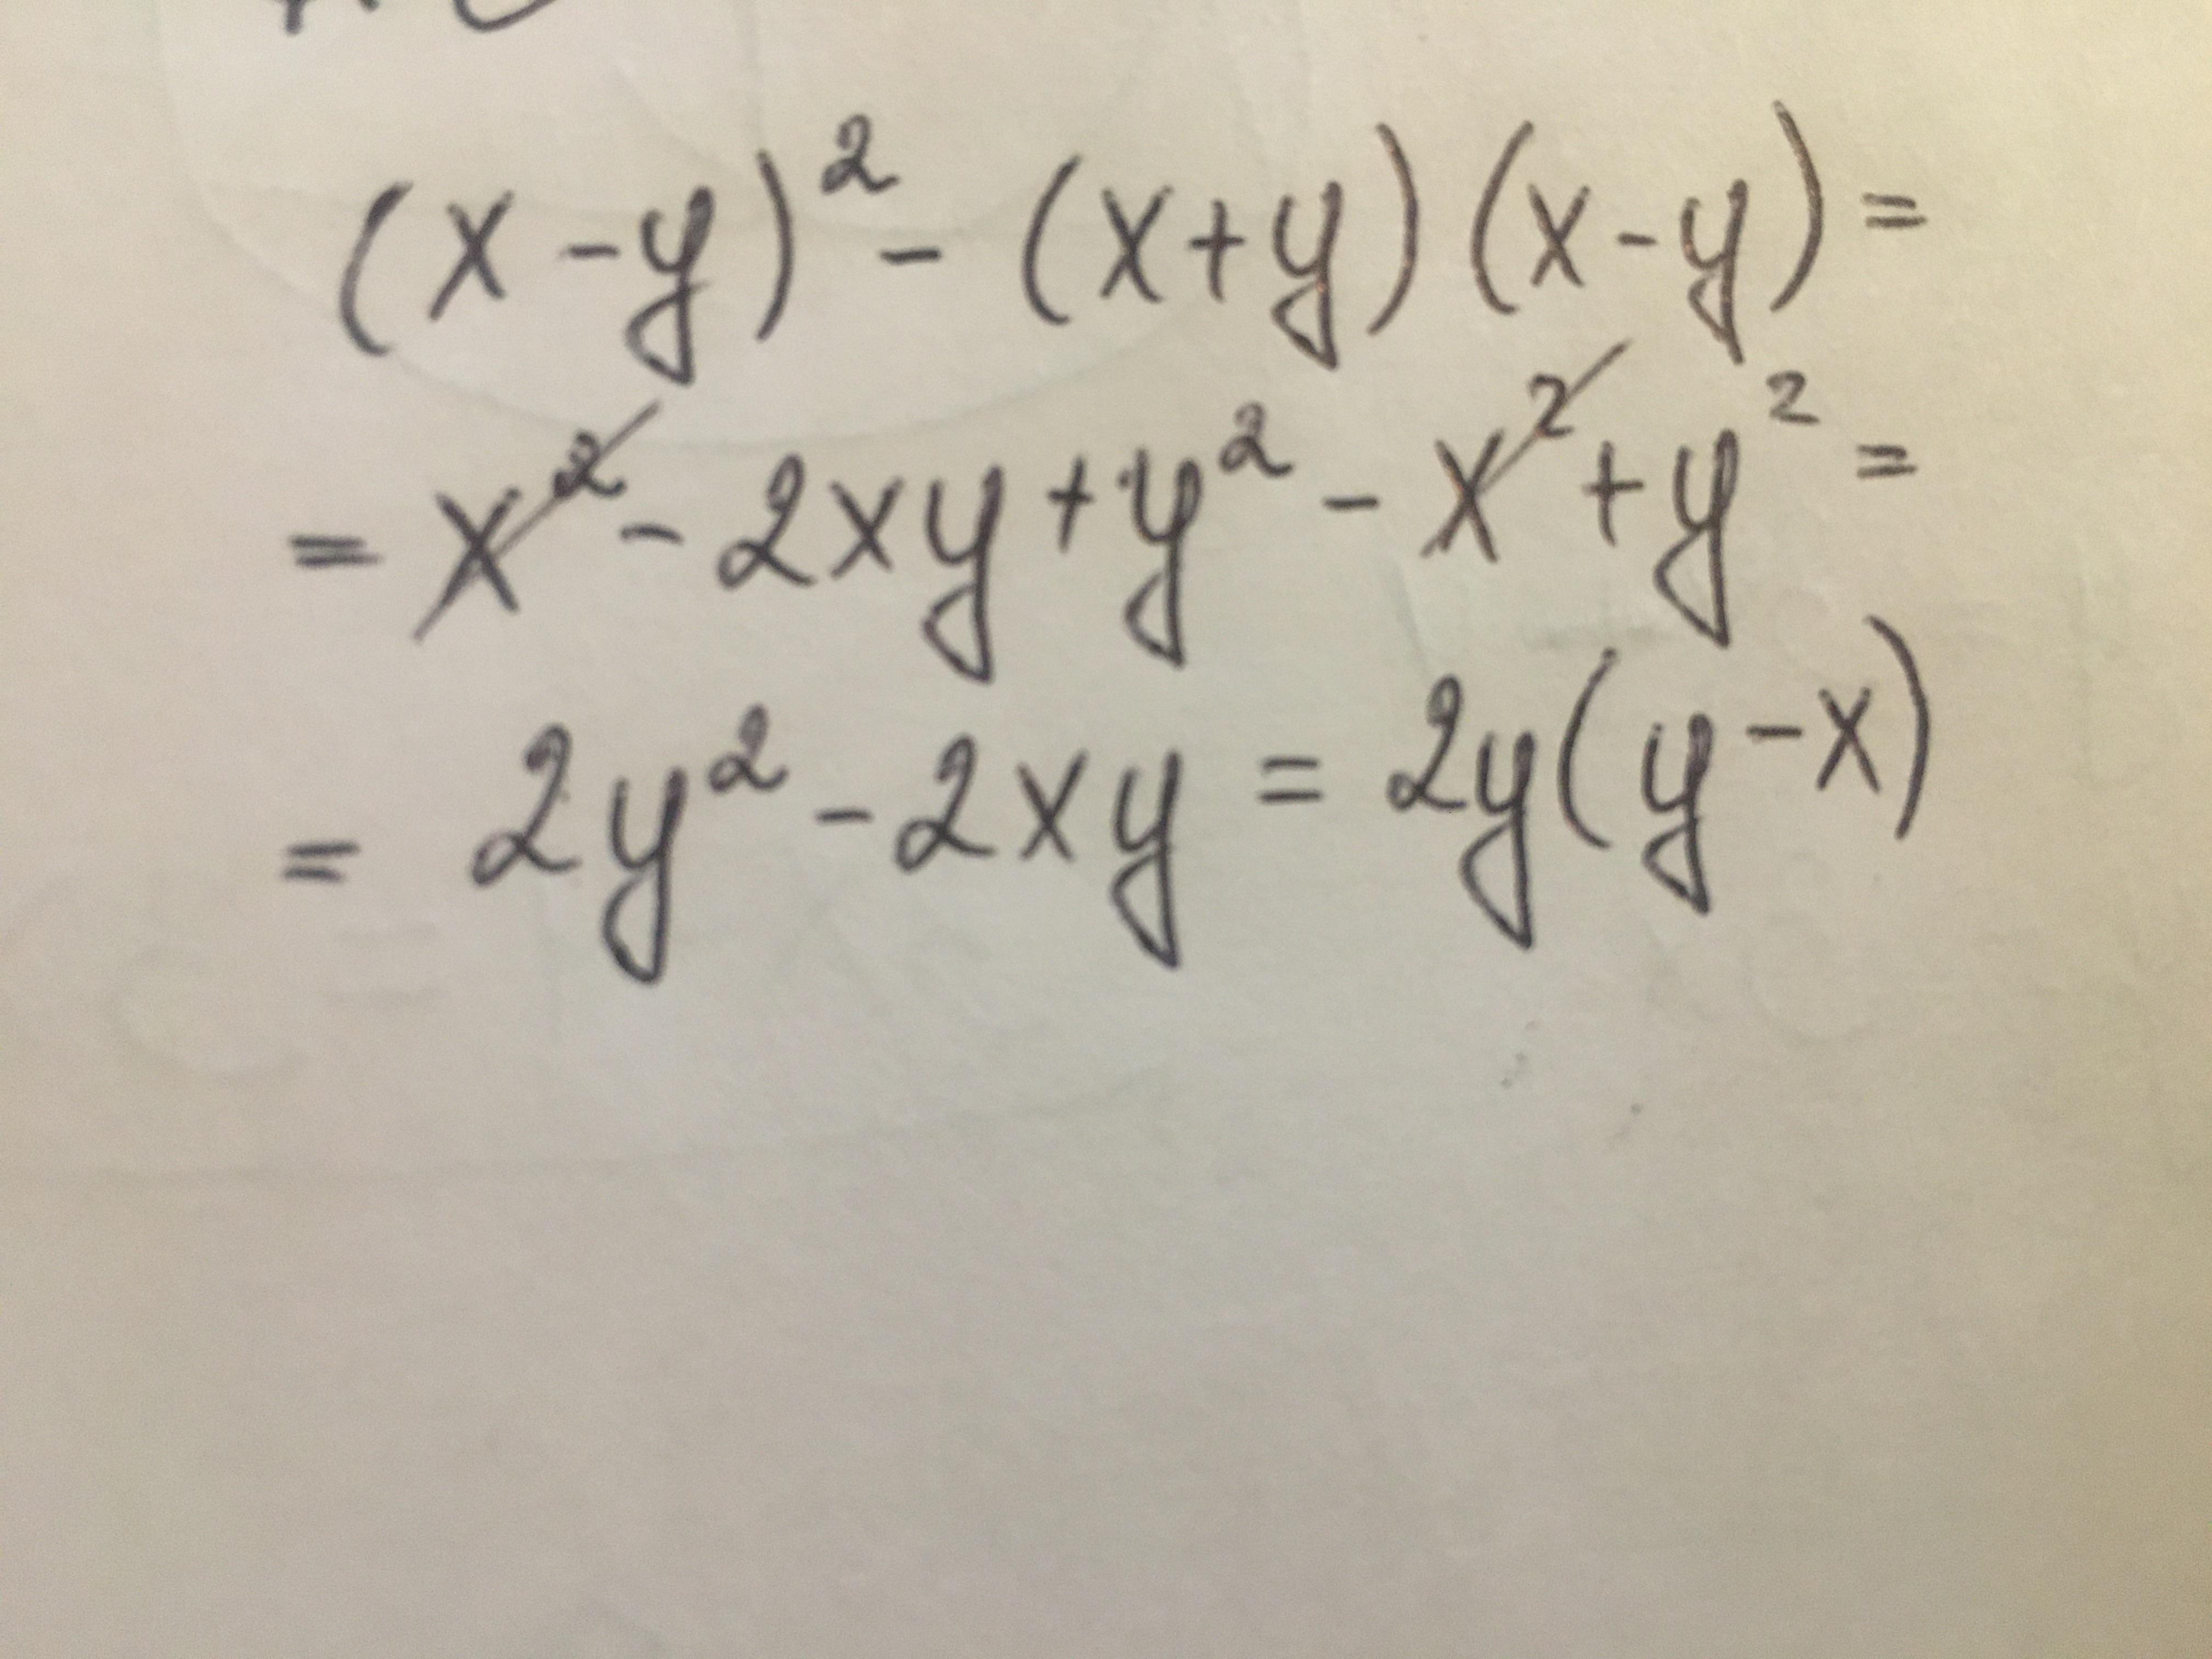 (x-y)² - (x+y)(x-y)=
= x² - 2xy + y² - x² + y² =
= 2y² - 2xy = 2y(y-x)